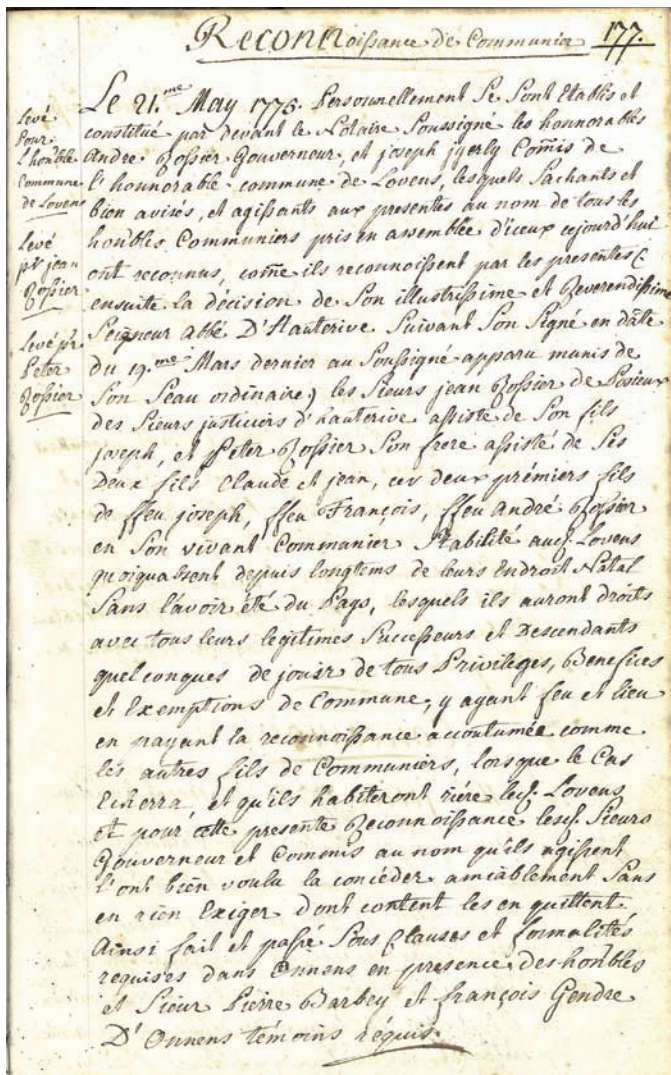 Reconnoissance de Communier 177.
Levé
Pour
L'hon:ble
Commune
de Lovens
Levé
pr jean
Rossier
Levé pr
Peter
Rossier
Le 21.me May 1776. Personnellement Se Sont Etablis et
constitué par devant le Notaire Soussigné les honnorables
André Rossier Gouverneur, et joseph jyerly Comis de
l'honnorable commune de Lovens, lesquels Sachants et
bien avisés, et agissants aux presentes au nom de tous les
hon:bles Communiers pris en assemblée d'iceux cejourd'hui
ont reconnus, come ils reconnoissent par les presentes (
ensuite la décision de Son illustrissime et Reverendissime
Seigneur Abbé D'Hauterive Suivant Son Signé en dâte
du 19.me Mars dernier au Soussigné apparu munis de
Son Seau ordinaire) les Sieurs jean Rossier de Posieux
des Sieurs justiciers d'hauterive assisté de Son fils
joseph, et Peter Rossier Son frere assisté de Ses
Deux fils Claude et jean, ces deux prémiers fils
de ffeu joseph, ffeu François, ffeu André Rossier
en Son vivant Communier Stabilité aud. Lovens
quoiquassent depuis longtems de leurs Endroit Natal
Sans l'avoir été du Pays, lesquels ils auront droits
avec tous leurs legitimes Successeurs et Descendants
quelconques de jouir de tous Privileges, Benefices
et Exemptions de Commune, y ayant feu et lieu
en payant la reconnoissance accoutumée comme
les autres fils de Communiers, lorsque le Cas
Echerra, et qu'ils habiteront riére led. Lovens,
et pour cette presente Reconnoissance lesd. Sieurs
Gouverneur et Commis au nom qu'ils agissent
l'ont bien voulu la concéder amiablement Sans
en rien Exiger dont content les en quittent.
Ainsi fait et passé Sous Clauses et formalités
requises dans Onnens en presence des hon:bles
et Sieur Pierre Barbey et françois Gendre
D'Onnens témoins réquis.